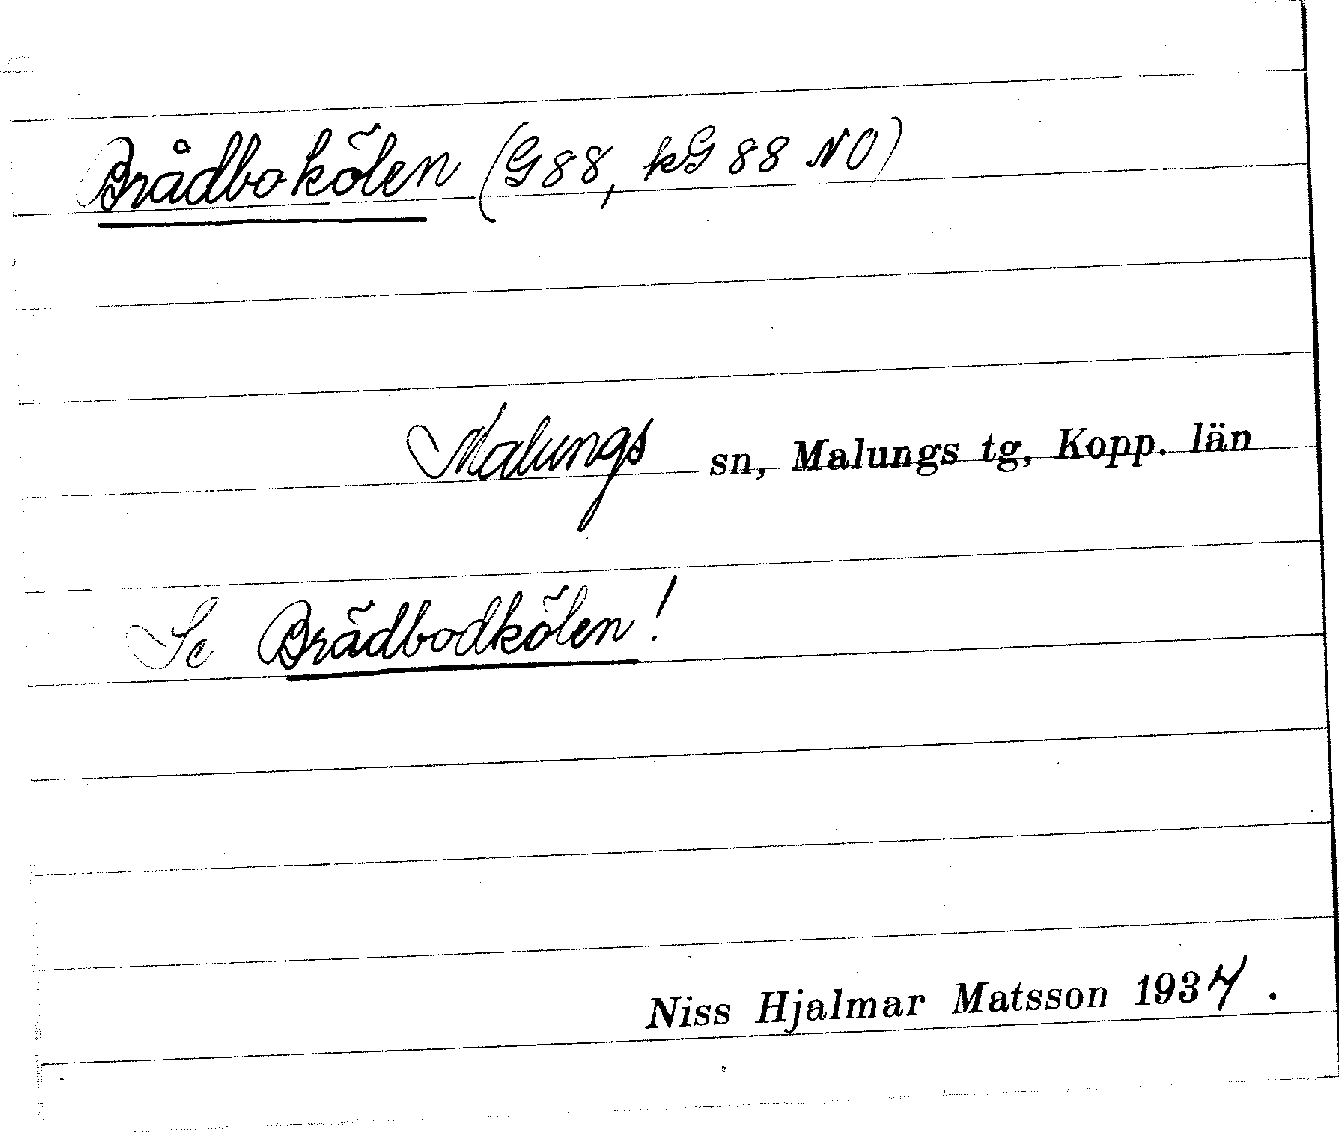 Brådbokölen (G88, kG 88 NO)
Malungs sn, Malungs tg, Kopp. län
Se Brädbodkölen!
Niss Hjalmar Matsson 1934.